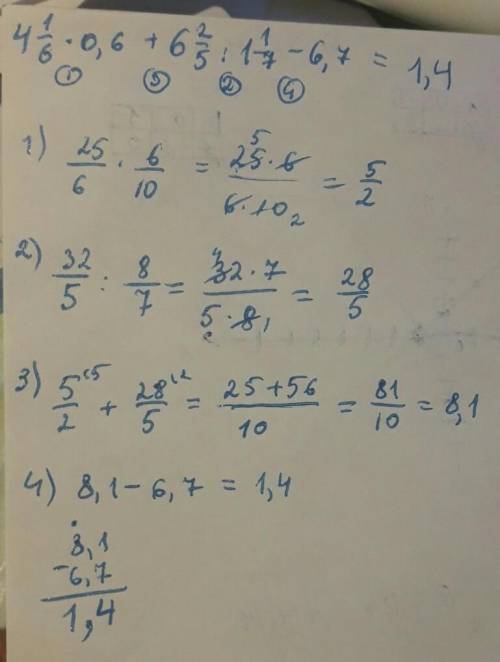 4 1/6 · 0,6 + 6 2/5 : 1 1/7 - 6,7 = 1,4
① ③ ② ④
1) 25/6 · 6/10 = 25·6/6·10 = 5/2
5
2
2) 32/5 : 8/7 = 32·7/5·8 = 28/5
4
1
3) 5/2 + 28/5 = 25+56/10 = 81/10 = 8,1
·5 ·2
4) 8,1 - 6,7 = 1,4
8,1
-6,7
1,4